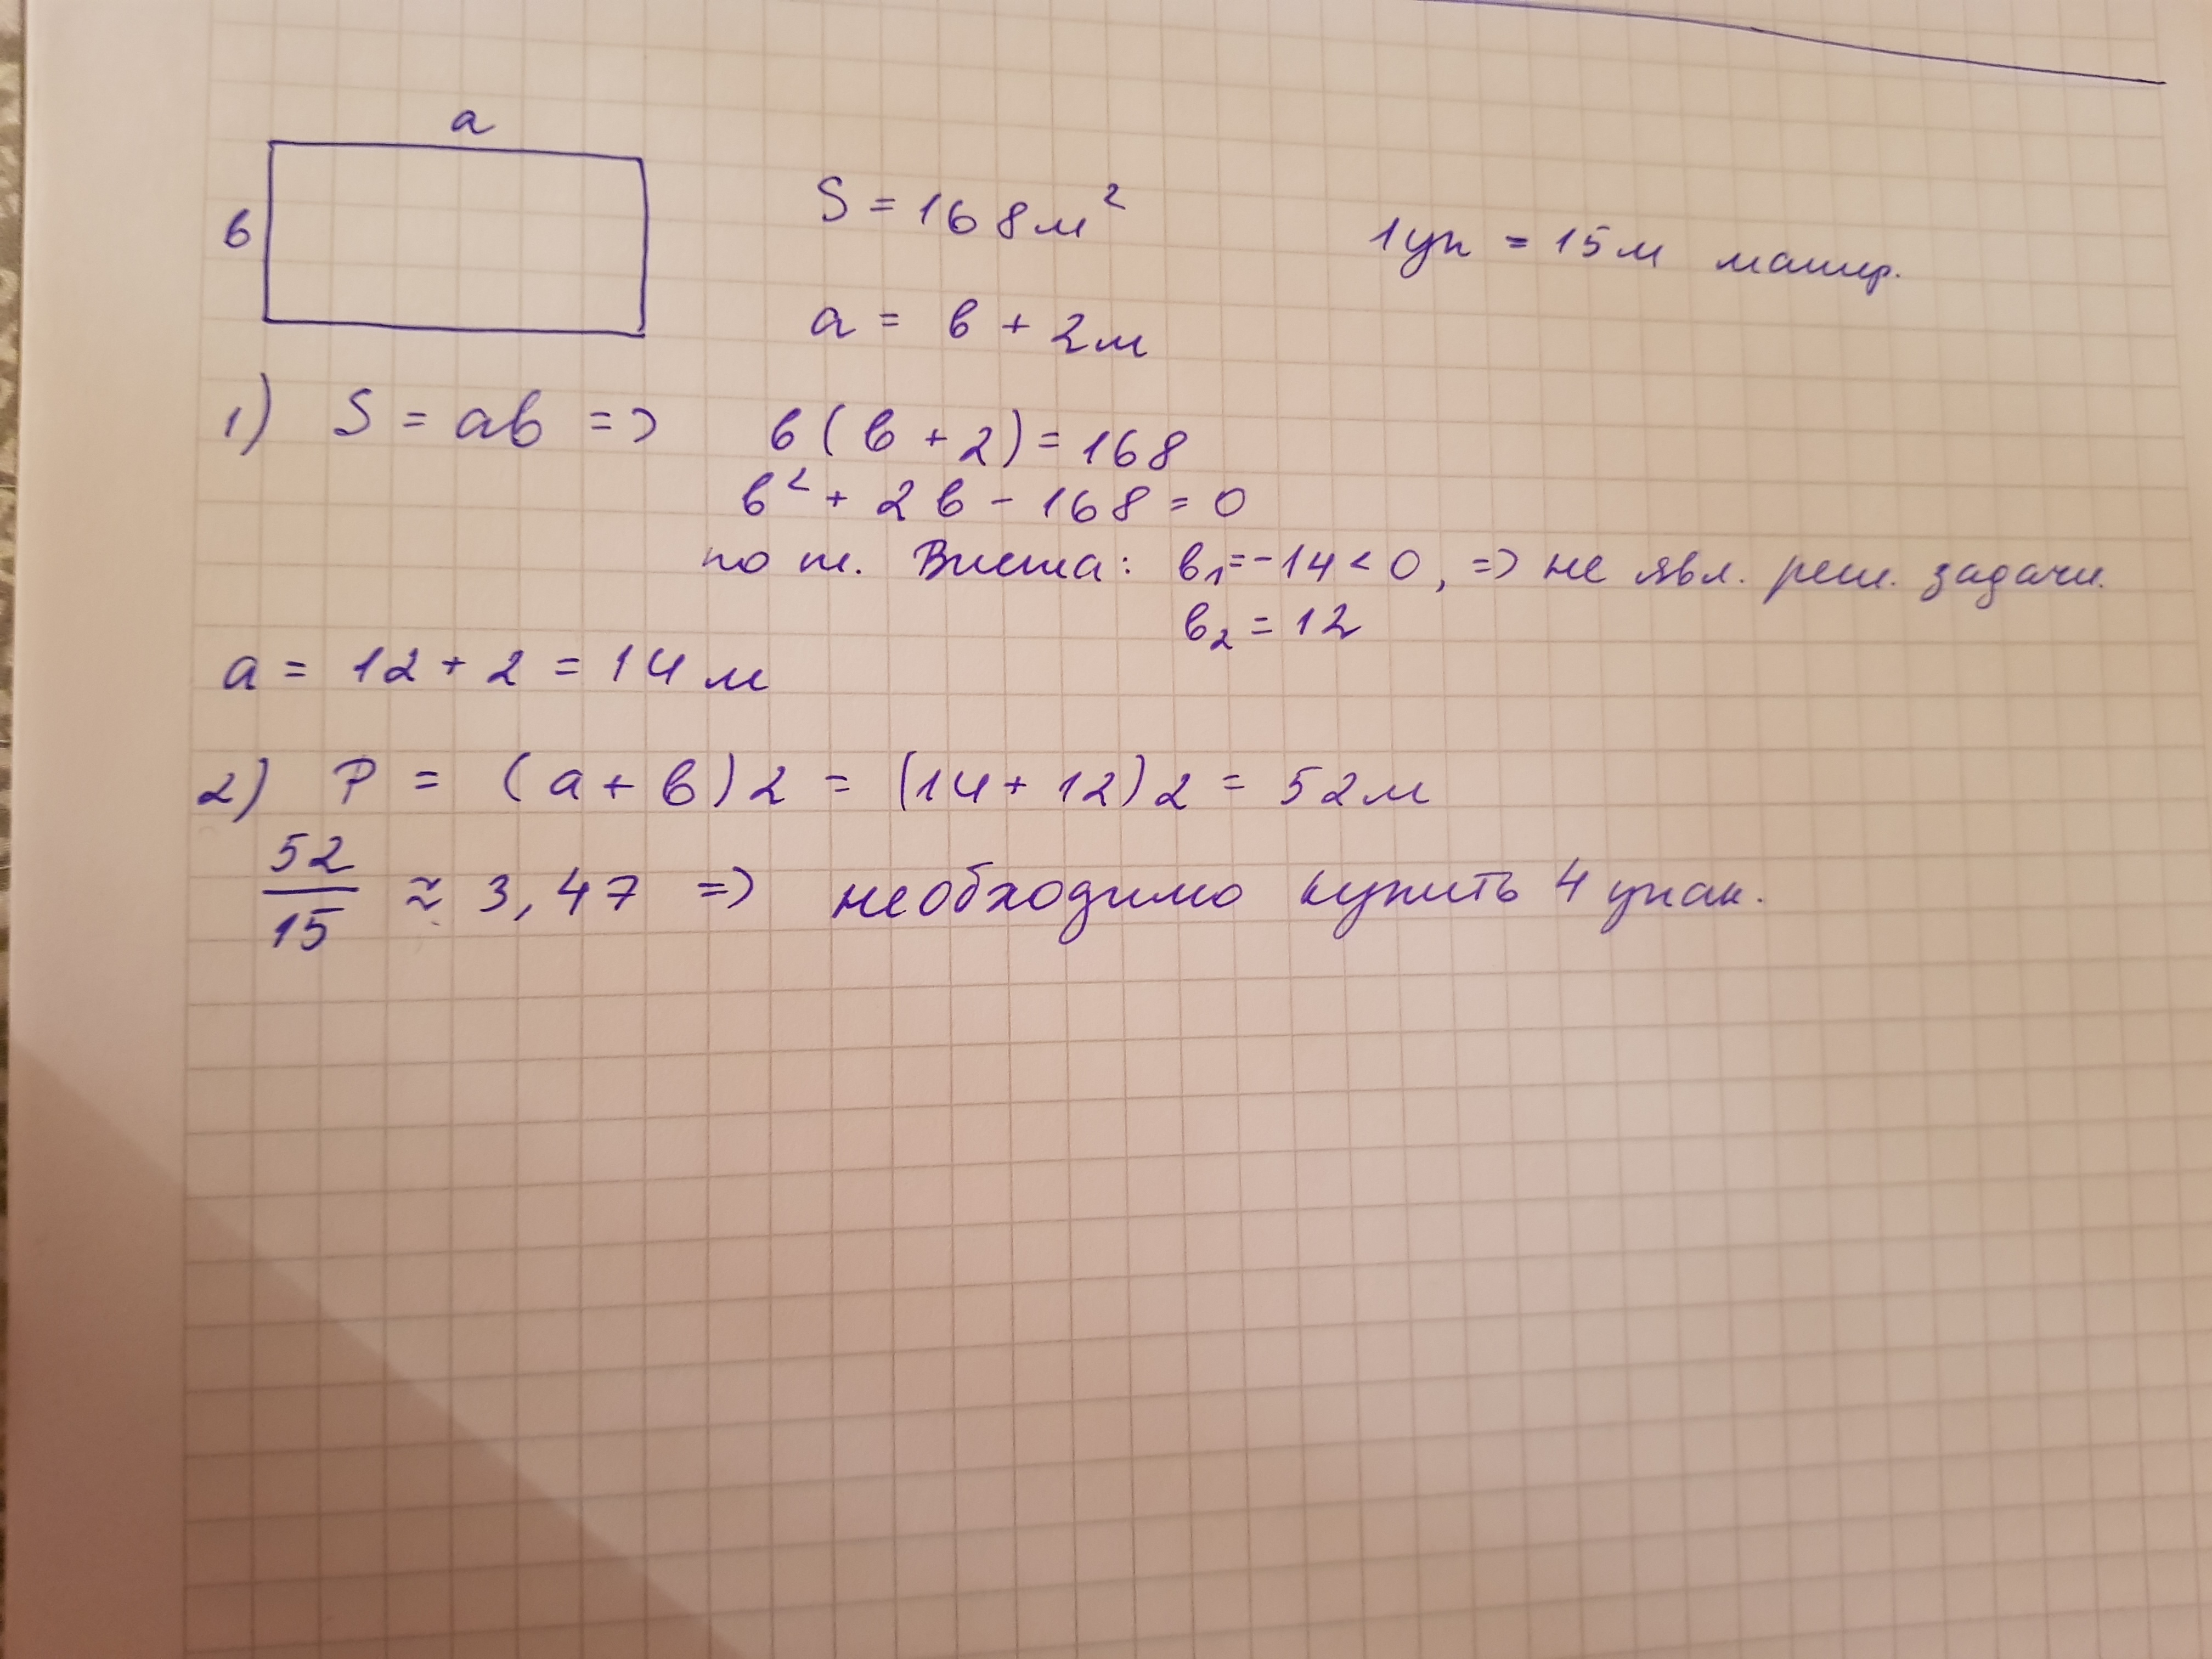 a
в
S = 168 м²
1 уп = 15 м матер.
a = в + 2 м
1) S = aв => в(в + 2) = 168
в² + 2в - 168 = 0
по т. Виета: в₁ = -14 < 0, => не явл. реш. задачи.
в₂ = 12
a = 12 + 2 = 14 м
2) P = (a + в)2 = (14 + 12)2 = 52 м
52/15 ≈ 3,47 => необходимо купить 4 упак.